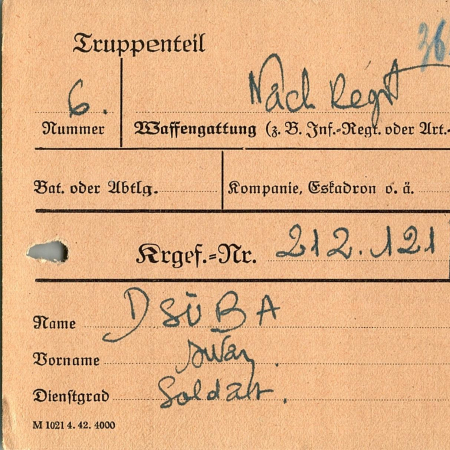 Truppenteil 36
6. Nach Regt
Nummer Waffengattung (z. B. Inf.-Regt. oder Art.-
Bat. oder Abtlg. Kompanie, Eskadron o. ä.
Krgef.-Nr. 212.121
Name DSÜBA
Vorname Iwan
Dienstgrad Soldat.
M 1021 4. 42. 4000